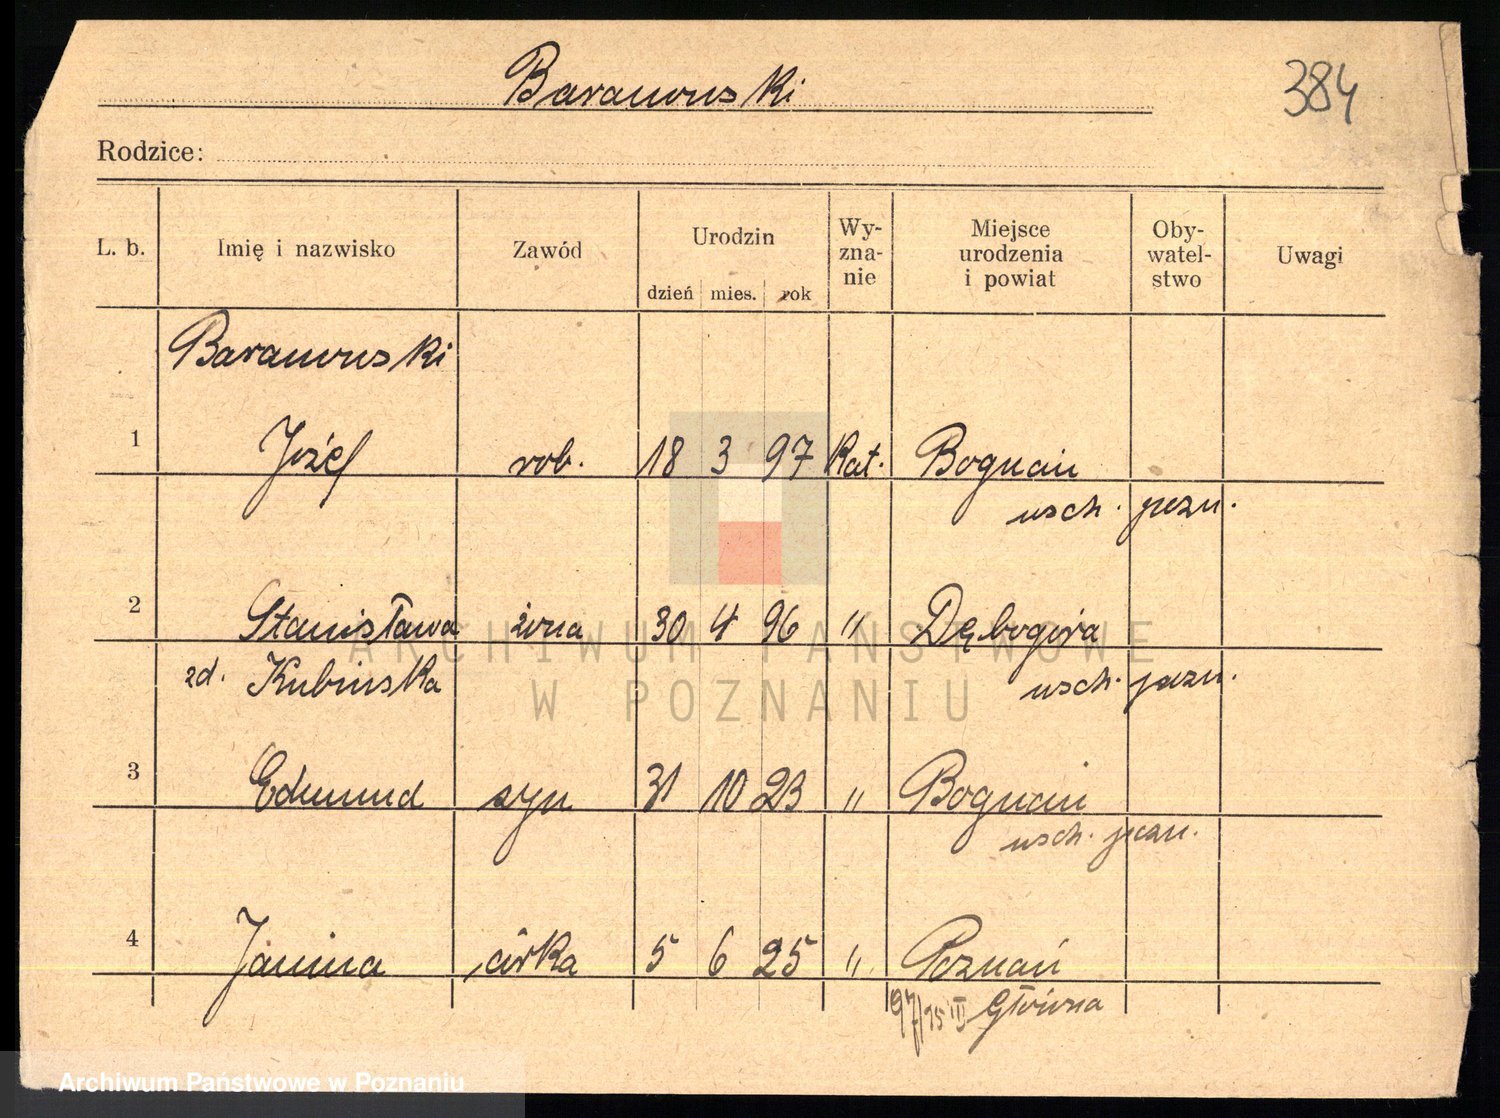 Baranowski
384
Rodzice:
L. b. Imię i nazwisko Zawód Urodzin dzień mies. rok Wy-zna-nie Miejsce urodzenia i powiat Oby-watel-stwo Uwagi
Baranowski
1 Józef rob. 18 3 97 Kat. Bogucin
wsch. pozn.
2 Stanisława żona 30 4 96 " Dębogóra
zd. Kubińska wsch. pozn.
3 Edmund syn 31 10 23 " Bogucin
wsch. pozn.
4 Janina córka 5 6 25 " Poznań
Główna
ARCHIWUM PAŃSTWOWE
W POZNANIU
Archiwum Państwowe w Poznaniu